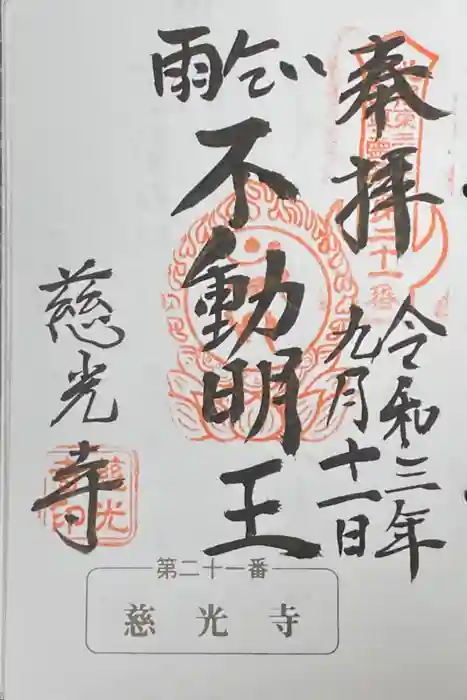 奉拝
令和三年
九月十一日
雨乞い
不動明王
慈光寺
第二十一番
慈光寺